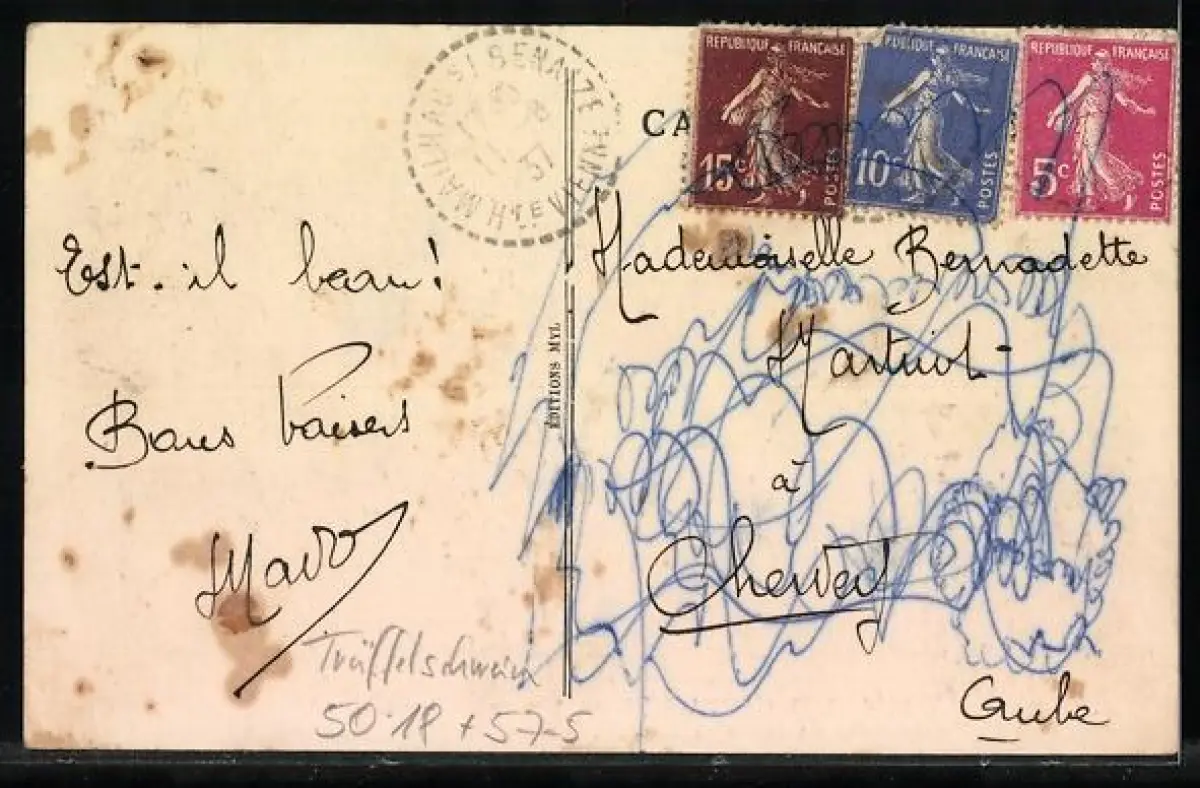 REPUBLIQUE FRANÇAISE
15c POSTES
REPUBLIQUE FRANÇAISE
10c POSTES
REPUBLIQUE FRANÇAISE
5c POSTES
CA
Est-il beau!
Bons baisers
Mado
ÉDITIONS MYL
Mademoiselle Bernadette
à
Aube
Trüffelschwein
50-18 + 57-5
Hte VIENNE